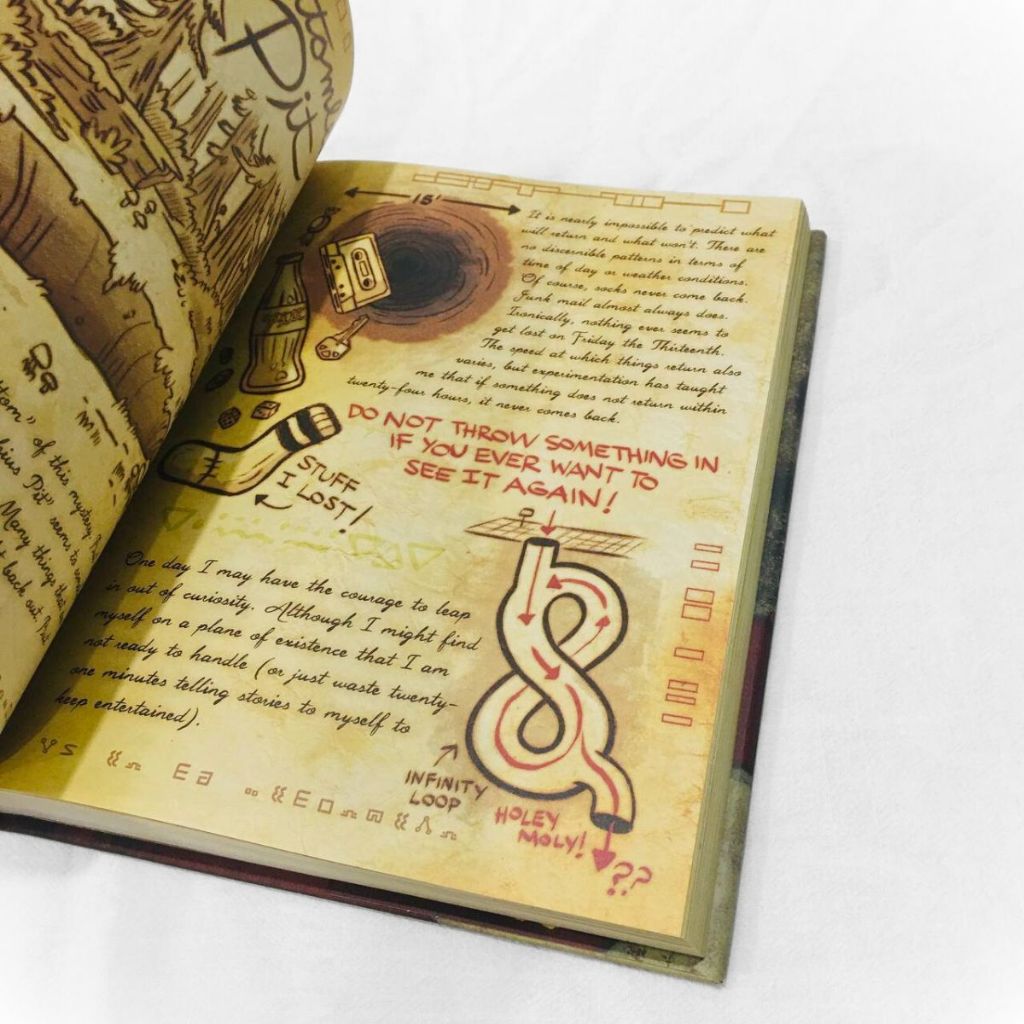 Pit
tom" of this mystery
Pit" seems to
Many things that
back out.
15'
It is nearly impossible to predict what
will return and what won't. There are
no discernible patterns in terms of
time of day or weather conditions.
Of course, socks never come back.
Junk mail almost always does.
Ironically, nothing ever seems to
get lost on Friday the Thirteenth.
The speed at which things return also
varies, but experimentation has taught
me that if something does not return within
twenty-four hours, it never comes back.
DO NOT THROW SOMETHING IN
IF YOU EVER WANT TO
SEE IT AGAIN!
STUFF
I LOST!
One day I may have the courage to leap
in out of curiosity. Although I might find
myself on a plane of existence that I am
not ready to handle (or just waste twenty-
one minutes telling stories to myself to
keep entertained).
INFINITY
LOOP
HOLEY
MOLY!
??